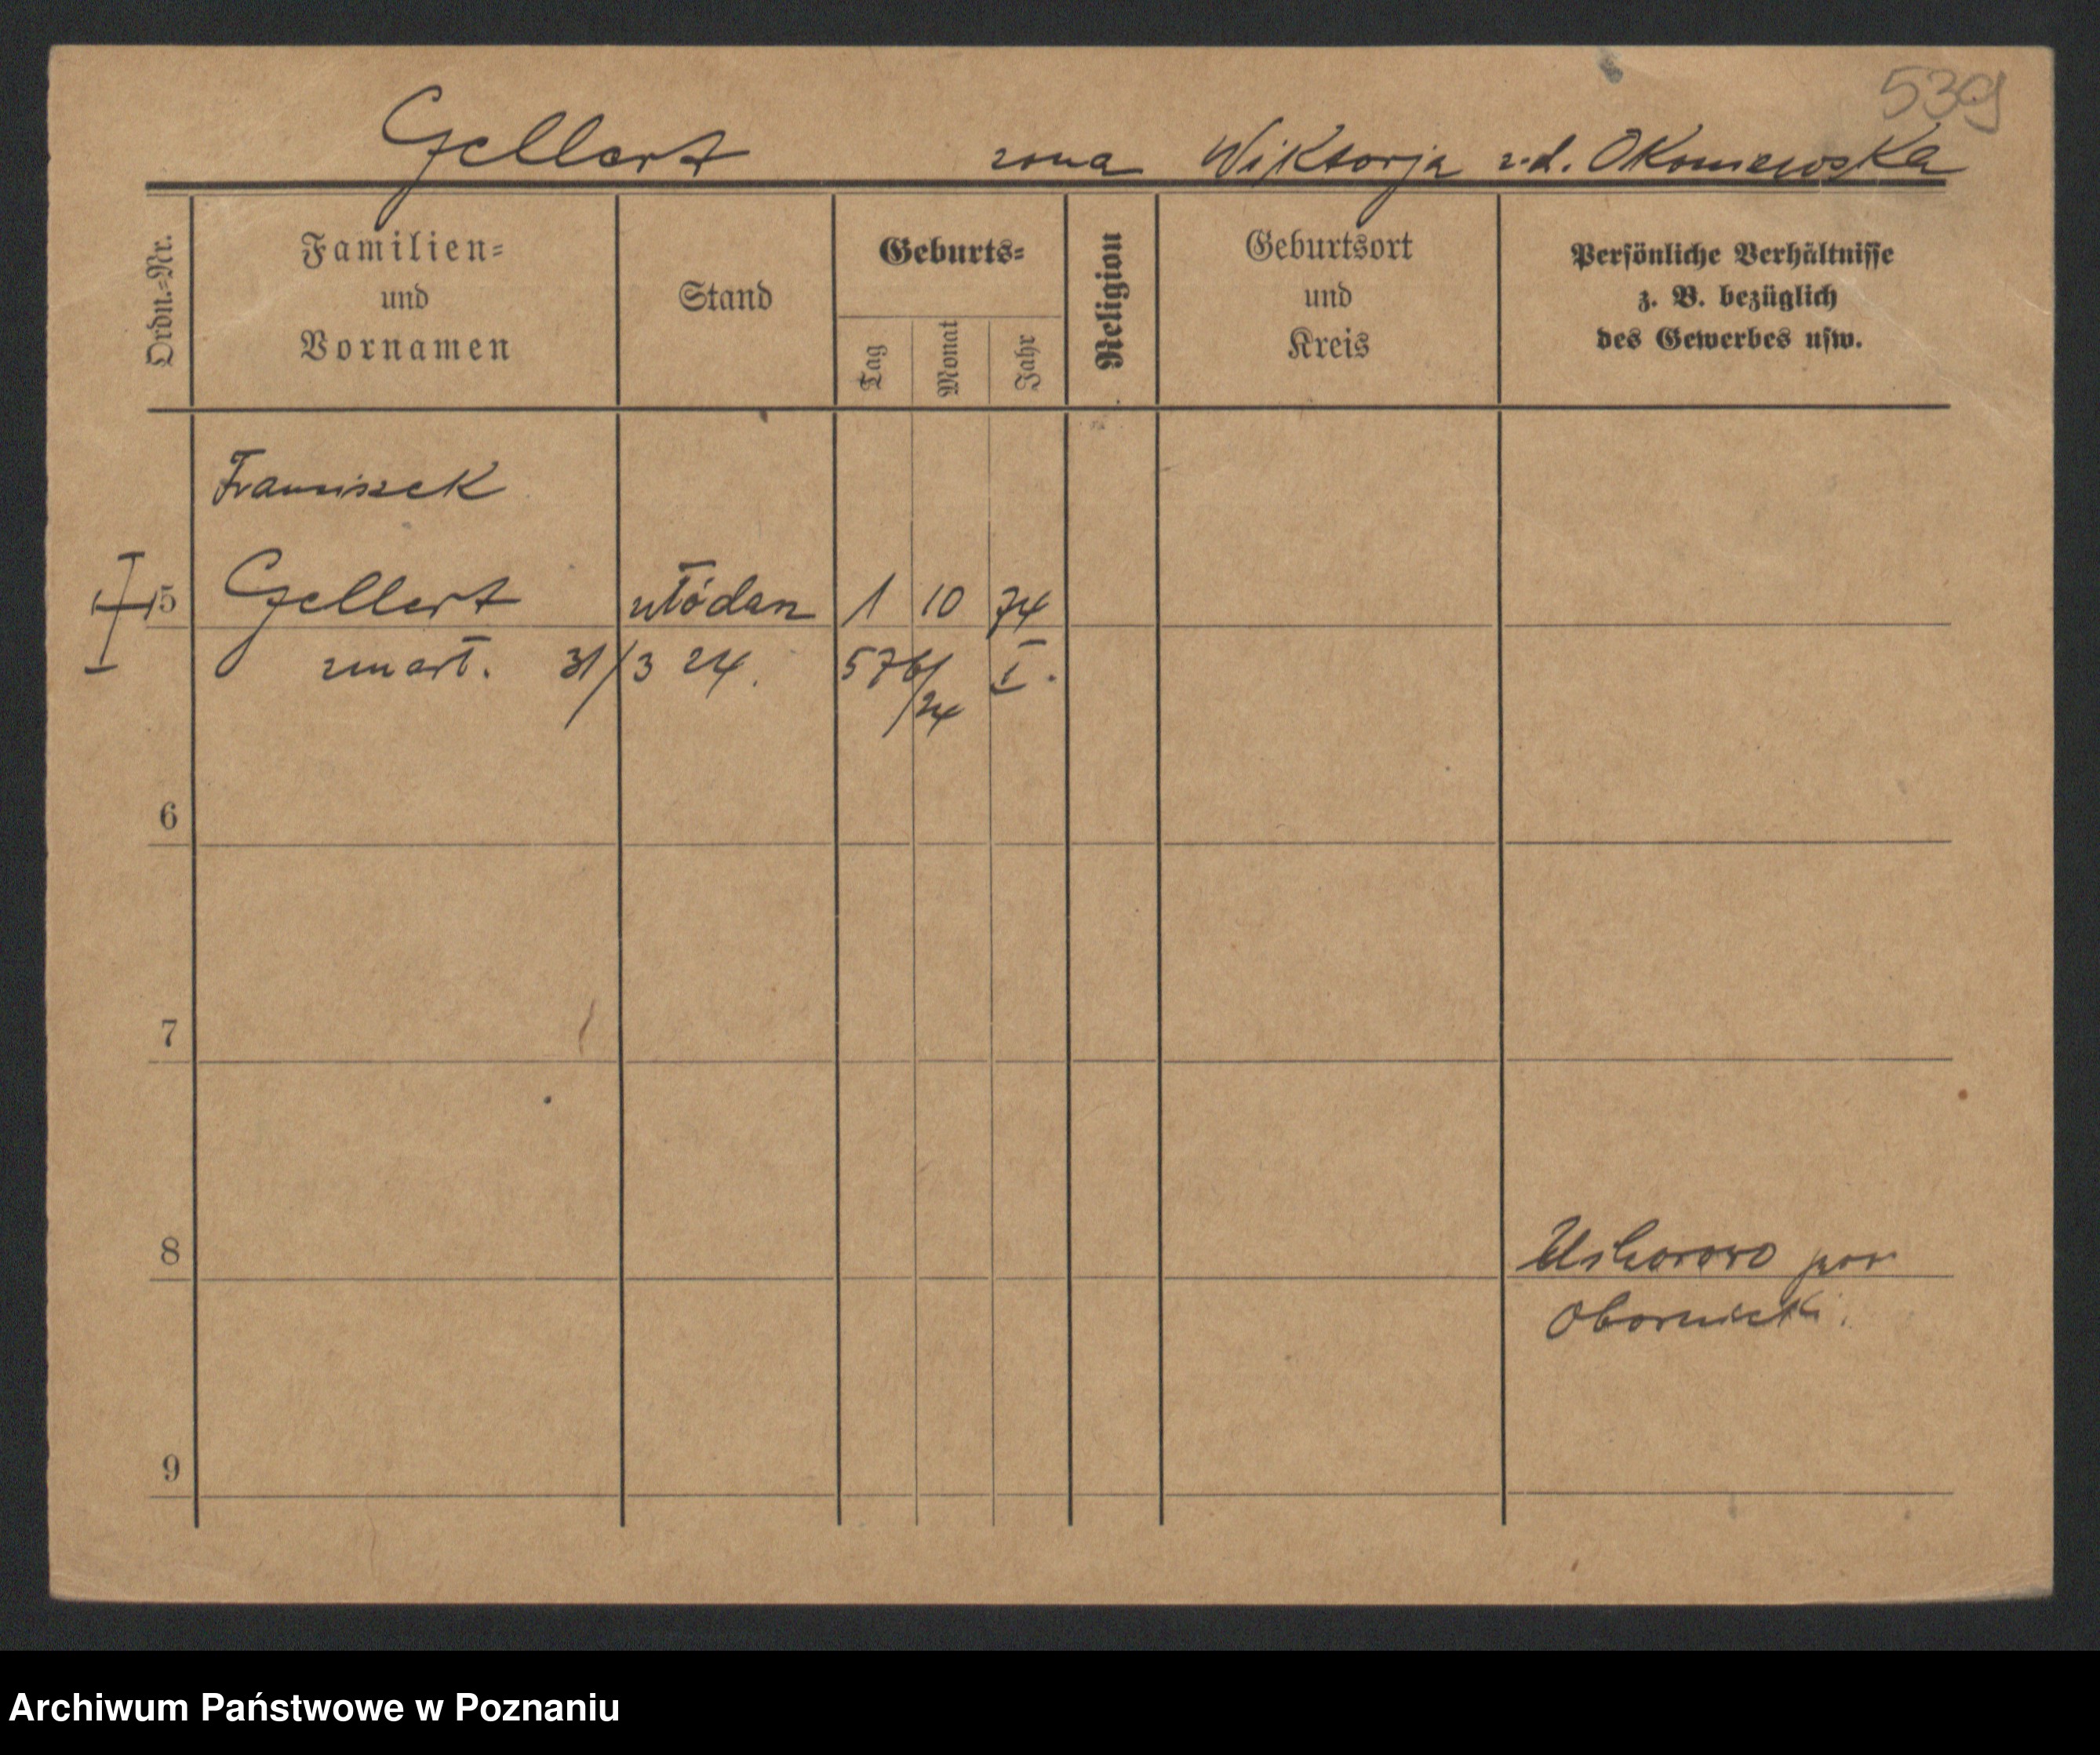 539
Gellert żona Wiktorja z d. Okoniewska
Ordn.=Nr.
Familien=
und
Vornamen
Stand
Geburts=
Tag
Monat
Jahr
Religion
Geburtsort
und
Kreis
Persönliche Verhältnisse
z. B. bezüglich
des Gewerbes usw.
Franciszek
5 Gellert włódarz 1 10 74
zmarł. 31/3 24. 576/24 I.
6
7
8
pow
Obornicki.
9
Archiwum Państwowe w Poznaniu